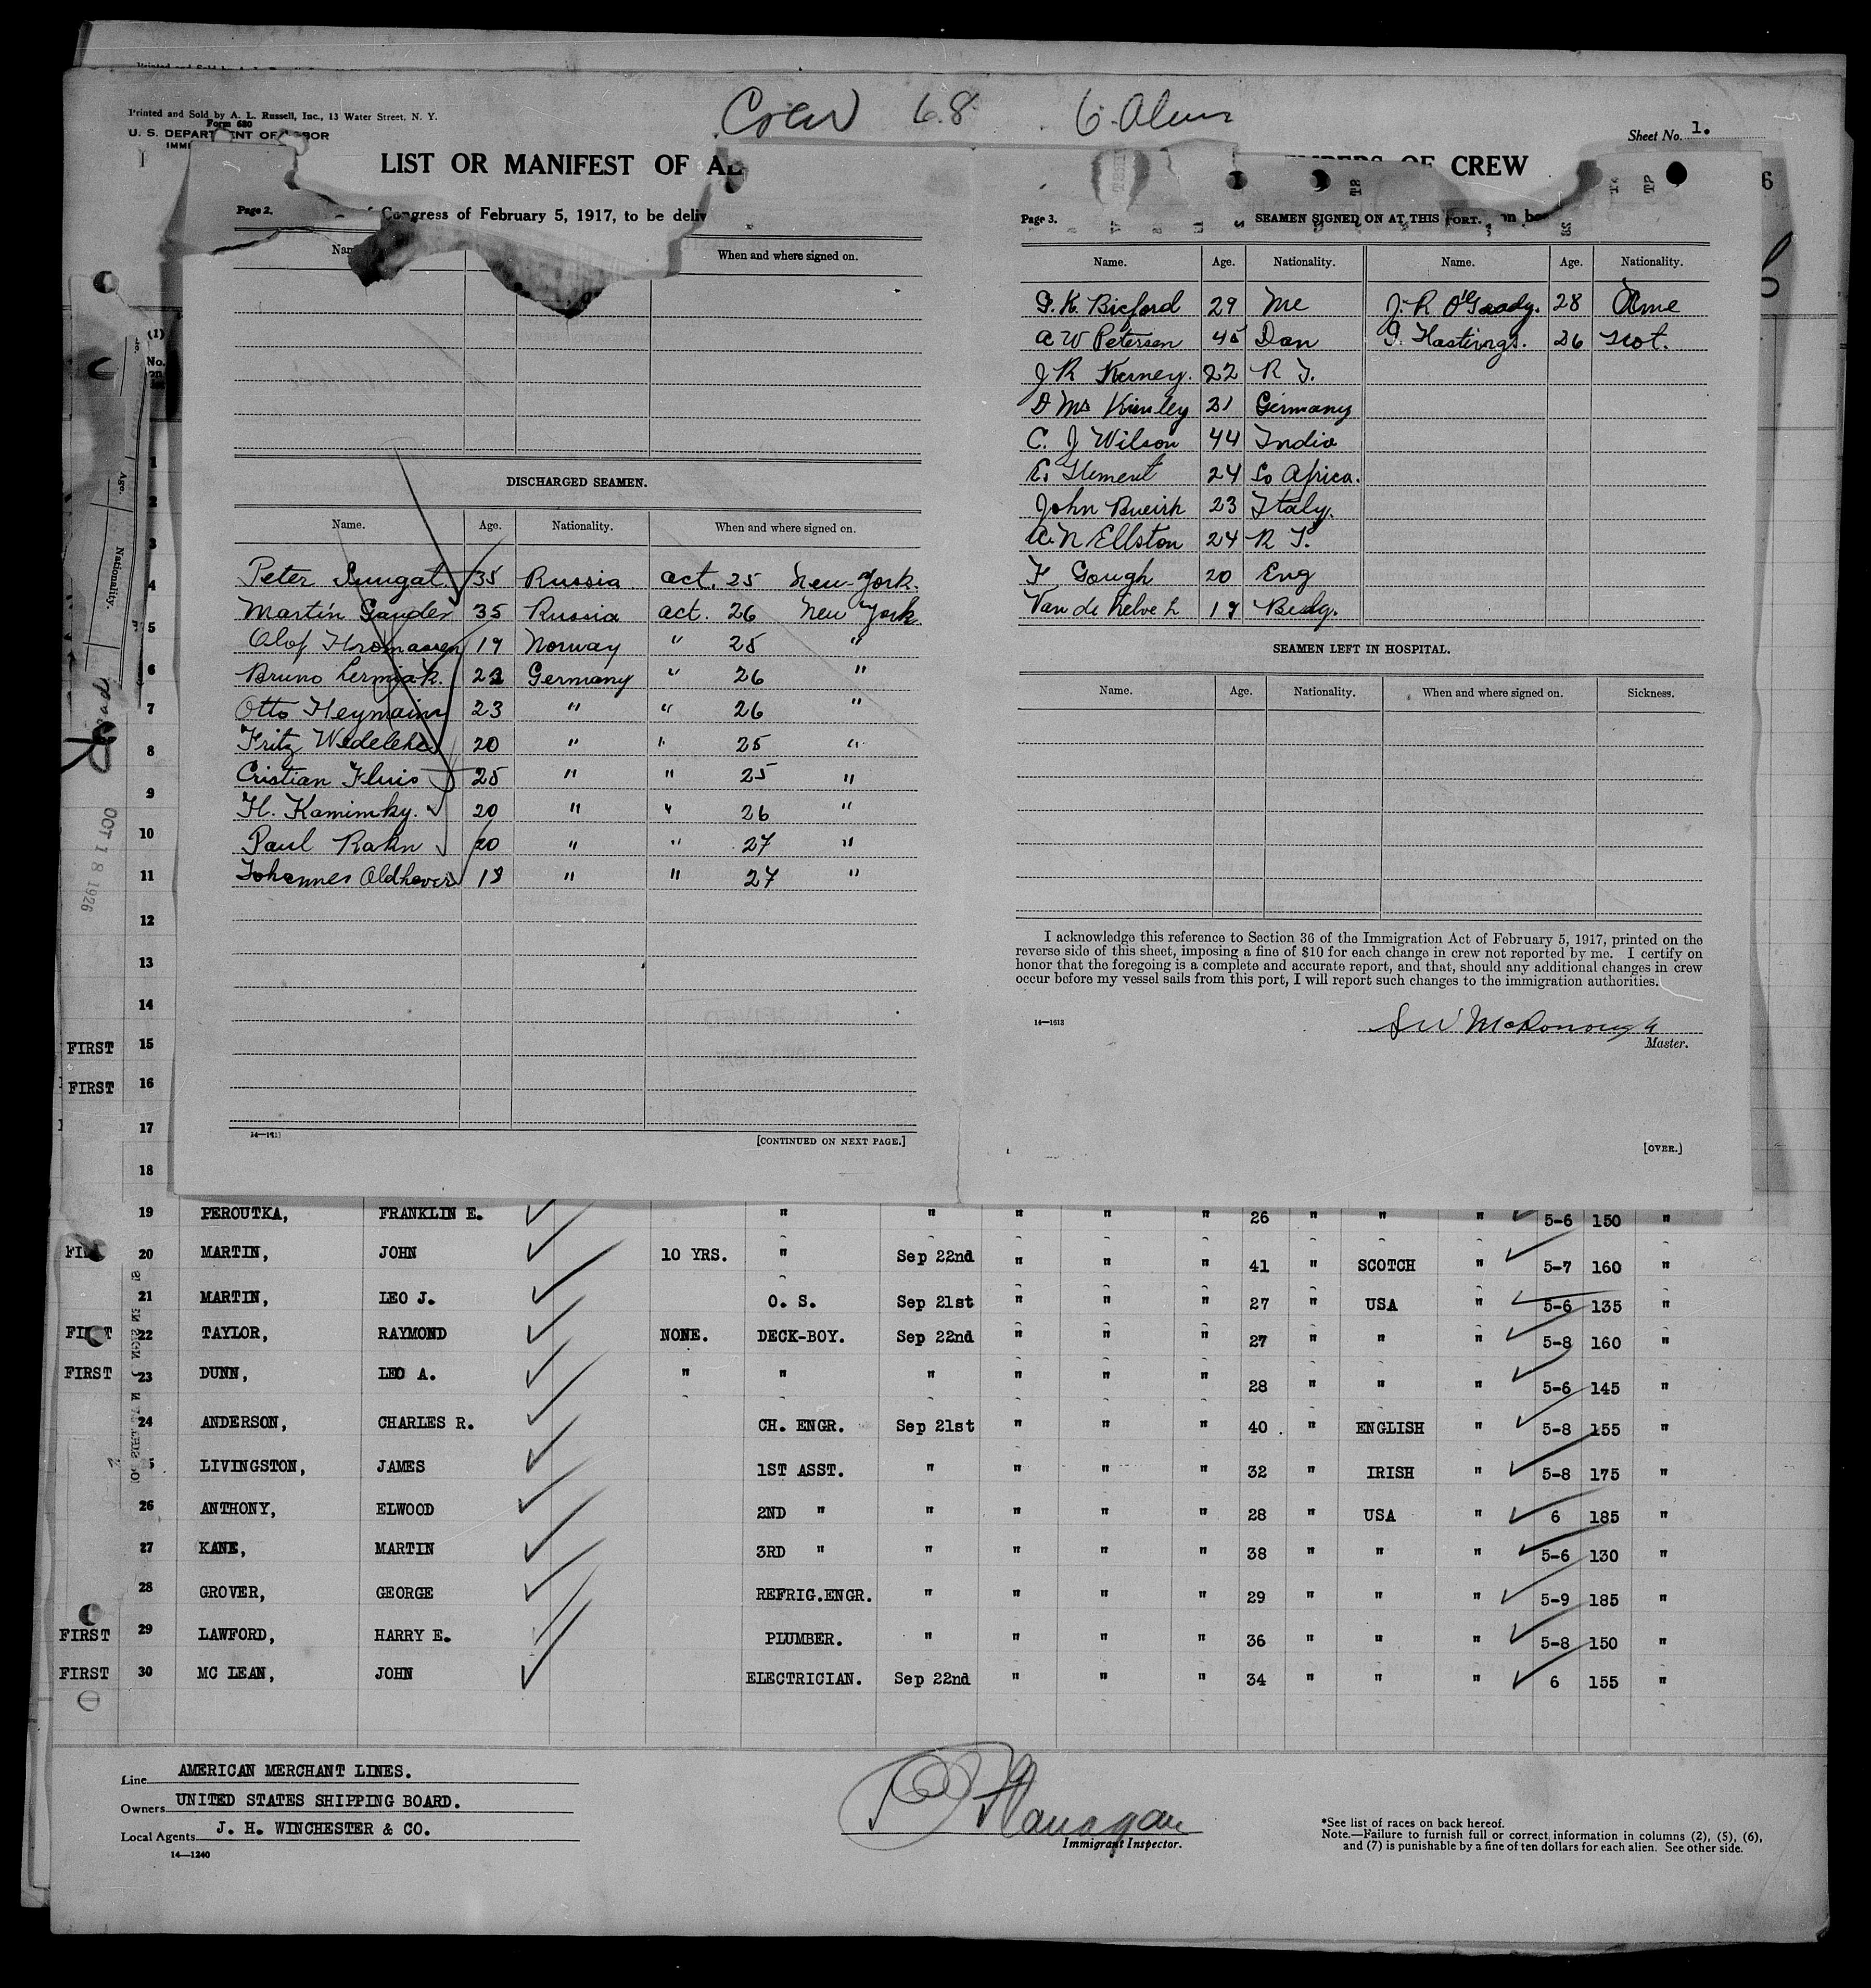 Printed and Sold by A. L. Russell, Inc., 13 Water Street, N. Y.
Form 680
U. S. DEPARTMENT OF LABOR
Crew 68 6 Aliens
Sheet No. 1.
LIST OR MANIFEST OF AL
MEMBERS OF CREW
Page 2.
of Congress of February 5, 1917, to be deliv
When and where signed on.
DISCHARGED SEAMEN.
Name. Age. Nationality. When and where signed on.
Peter 35 Russia Oct. 25 New-York.
Martin Gauder 35 Russia Oct. 26 New York
Olof 19 Norway " 25 "
Bruno 22 Germany " 26 "
Otto Heymann 23 " " 26 "
Fritz 20 " " 25 "
Cristian 25 " " 25 "
H. Kamimky. 20 " " 26 "
Paul Rahn 20 " " 27 "
Johannes Oldhover 18 " " 27 "
[CONTINUED ON NEXT PAGE.]
Page 3.
SEAMEN SIGNED ON AT THIS PORT.
Name. Age. Nationality. Name. Age. Nationality.
G. K. Bicford 29 Me J. R. O'Grady. 28 Ame
A W Petersen 45 Dan G. Hastings. 26 Scot.
J R Kerney. 22 R I.
D Mc Kinley 21 Germany
C. J Wilson 44 India
E. Hement 24 So Africa.
John 23 Italy.
A. N Ellston 24 R I.
F Gough 20 Eng
Van de Kelve L 19 Belg.
SEAMEN LEFT IN HOSPITAL.
Name. Age. Nationality. When and where signed on. Sickness.
I acknowledge this reference to Section 36 of the Immigration Act of February 5, 1917, printed on the
reverse side of this sheet, imposing a fine of $10 for each change in crew not reported by me. I certify on
honor that the foregoing is a complete and accurate report, and that, should any additional changes in crew
occur before my vessel sails from this port, I will report such changes to the immigration authorities.
14—1613
McDonough
Master.
[OVER.]
(1)
No.
Age.
Nationality.
OCT 18 1926
1
2
3
4
5
6
7
8
9
10
11
12
13
14
FIRST 15
FIRST 16
17
18
19 PEROUTKA, FRANKLIN E. " " " " " 26 " " " 5-6 150 "
20 MARTIN, JOHN 10 YRS. " Sep 22nd " " " 41 " SCOTCH " 5-7 160 "
21 MARTIN, LEO J. O. S. Sep 21st " " " 27 " USA " 5-6 135 "
FIRST 22 TAYLOR, RAYMOND NONE. DECK-BOY. Sep 22nd " " " 27 " " " 5-8 160 "
FIRST 23 DUNN, LEO A. " " " " " " 28 " " " 5-6 145 "
24 ANDERSON, CHARLES R. CH. ENGR. Sep 21st " " " 40 " ENGLISH " 5-8 155 "
5 LIVINGSTON, JAMES 1ST ASST. " " " " 32 " IRISH " 5-8 175 "
26 ANTHONY, ELWOOD 2ND " " " " " 28 " USA " 6 185 "
27 KANE, MARTIN 3RD " " " " " 38 " " " 5-6 130 "
28 GROVER, GEORGE REFRIG.ENGR. " " " " 29 " " " 5-9 185 "
FIRST 29 LAWFORD, HARRY E. PLUMBER. " " " " 36 " " " 5-8 150 "
FIRST 30 MC LEAN, JOHN ELECTRICIAN. Sep 22nd " " " 34 " " " 6 155 "
Line AMERICAN MERCHANT LINES.
Owners UNITED STATES SHIPPING BOARD.
Local Agents J. H. WINCHESTER & CO.
14—1240
Flanagan
Immigrant Inspector.
*See list of races on back hereof.
Note.—Failure to furnish full or correct information in columns (2), (5), (6),
and (7) is punishable by a fine of ten dollars for each alien. See other side.